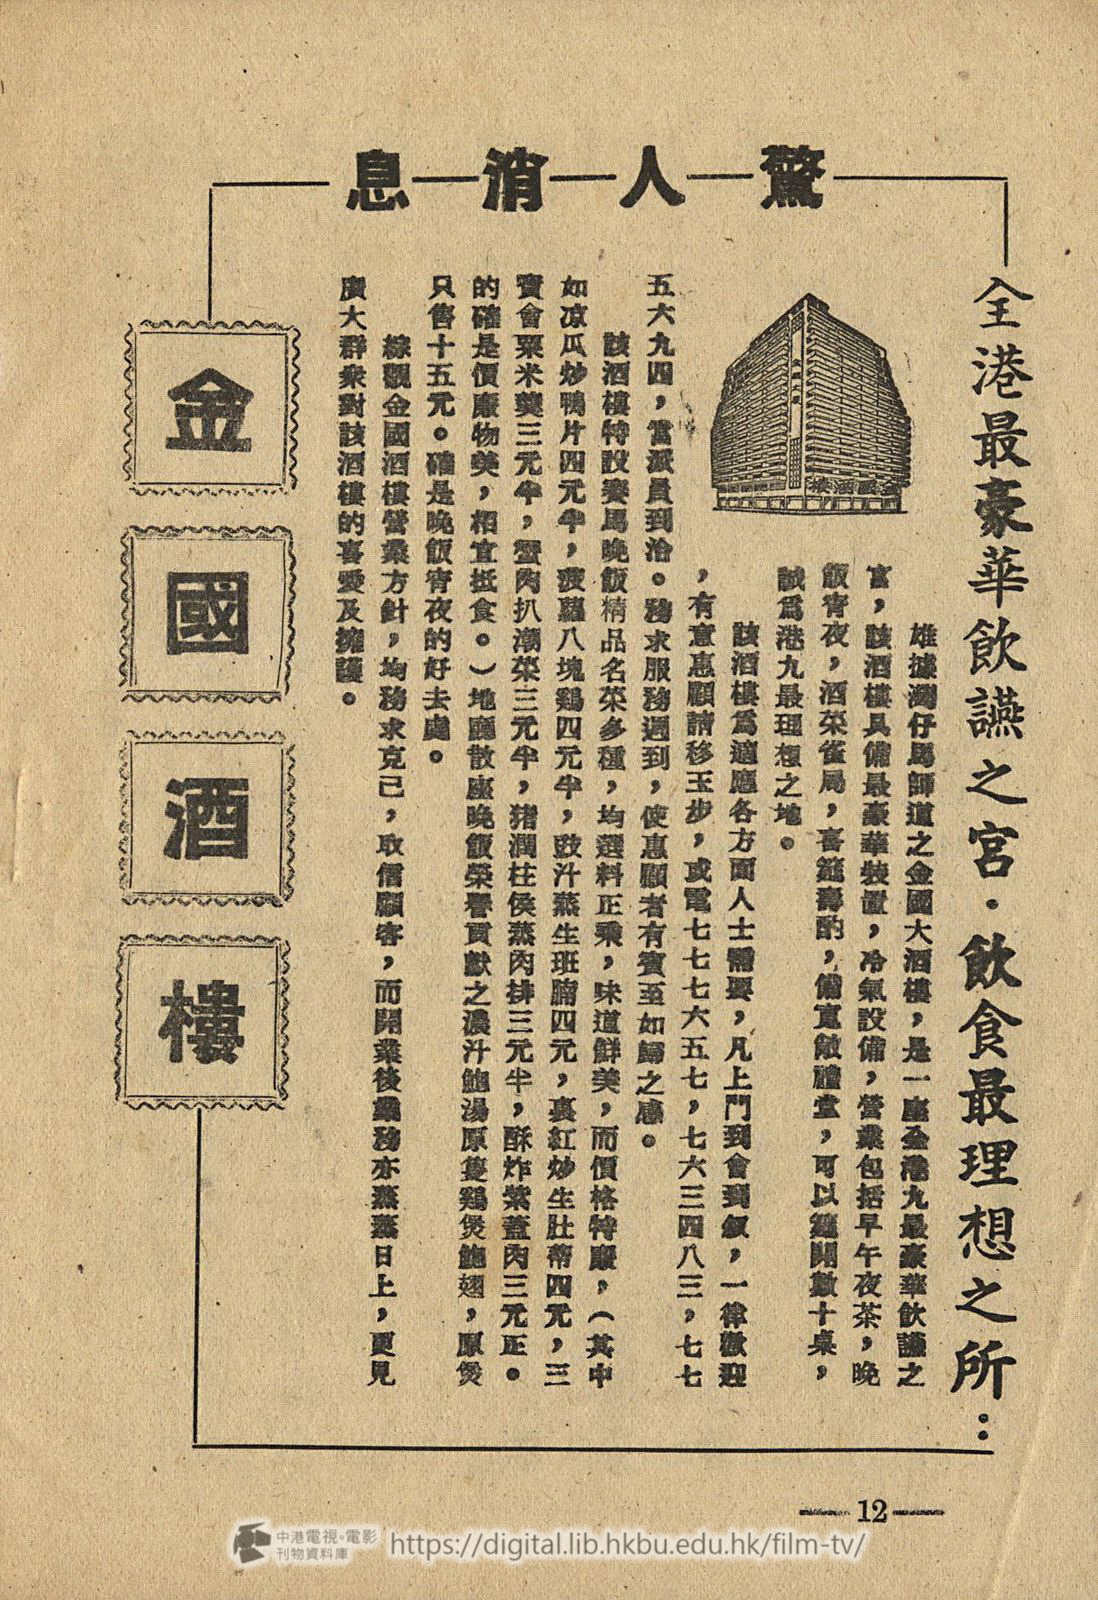 驚人消息
全港最豪華飲讌之宮·飲食最理想之所：
金國酒樓
雄據灣仔馬師道之金國大酒樓，是一座全港九最豪華飲讌之
宮，該酒樓具備最豪華裝置，冷氣設備，營業包括早午夜茶，晚
飯宵夜，酒菜雀局，喜筵壽酌，備寬敞禮堂，可以筵開數十桌，
誠爲港九最理想之地。
該酒樓爲適應各方面人士需要，凡上門到會到叙，一律歡迎
，有意惠顧請移玉步，或電七七七六五七，七六三四八三，七七
五六九四，當派員到洽。務求服務週到，使惠顧者有賓至如歸之感。
該酒樓特設賽馬晚飯精品名菜多種，均選料正乘，味道鮮美，而價格特廉，（其中
如凉瓜炒鴨片四元半，菠蘿八塊鷄四元半，豉汁蒸生班腩四元，裏紅炒生肚蒂四元，三
寶會粟米羹三元半，蟹肉扒潮菜三元半，猪潤柱侯蒸肉排三元半，酥炸紫蓋肉三元正。
的確是價廉物美，栢宜抵食。）地廳散座晚飯榮譽貢獻之濃汁鮑湯原隻鷄煲鮑翅，原煲
只售十五元。確是晚飯宵夜的好去處。
綜觀金國酒樓營業方針，均務求克己，取信顧客，而開業後業務亦蒸蒸日上，更見
廣大群衆對該酒樓的喜愛及擁護。
金
國
酒
樓
—12—
中港電視·電影
刊物資料庫
https://digital.lib.hkbu.edu.hk/film-tv/